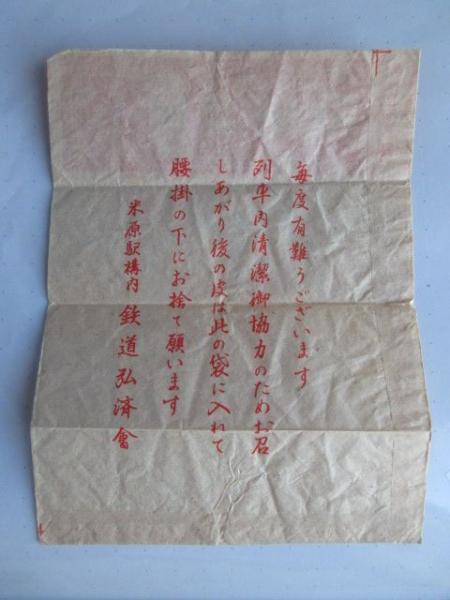 毎度有難うございます
列車内清潔御協力のためお召
しあがり後の皮は此の袋に入れて
腰掛の下にお捨て願います
米原駅構内 鉄道弘済會